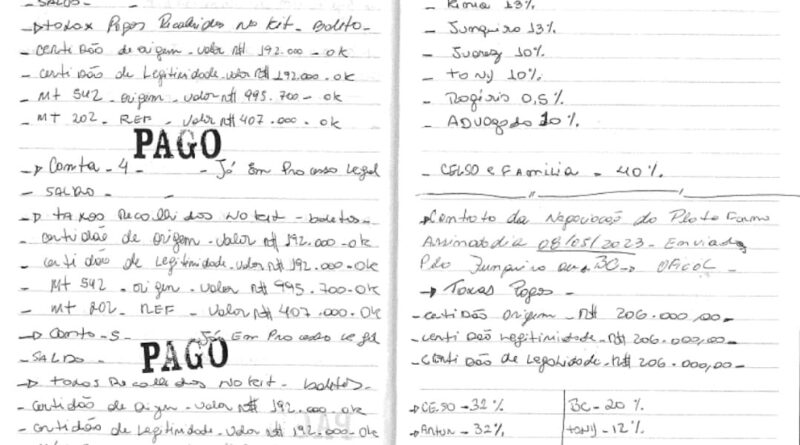 - SALDO -
→ taxas Pagas Recolhidos No Kit - Boleto -
- certidão de origem - valor R$ 192.000 - ok
- certidão de Legitimidade - valor R$ 192.000 - ok
- MT 542 - origem - valor R$ 995.700 - ok
- MT 202 - REF - valor R$ 407.000 - ok
PAGO
→ Conta - 4 - - Já Em Processo Legal
- SALDO -
→ taxas Recolhidos No Kit - boletos -
- certidão de origem - valor R$ 192.000 - ok
- certidão de Legitimidade - valor R$ 192.000 - ok
- MT 542 - origem - valor R$ 995.700 - ok
- MT 202 - REF - valor R$ 407.000 - ok
→ Conta - 5 - Já Em Processo Legal
PAGO
- SALDO -
→ taxas Recolhidos No Kit - Boletos -
- certidão de origem - valor R$ 192.000 - ok
- certidão de Legitimidade - valor R$ 192.000 - ok
13%
- Junqueiro 13%
- Juarez 10%
- tony 10%
- Rogério 0,5%
- ADVOGADO 10%
- CELSO e Família - 40%
→ Contrato da Negociação do
Assinado dia 08/05/2023 - Enviado
Pelo Junqueiro BC
→ Taxas Pagas -
- certidão origem - R$ 206.000,00 -
- certidão Legitimidade - R$ 206.000,00 -
- certidão de Legalidade - R$ 206.000,00 -
→ CELSO - 32% BC - 20%
→ Anton - 32% tony - 12%